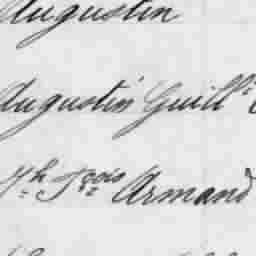 Augustin
Augustin Guill.
Jh. Fçois Armand